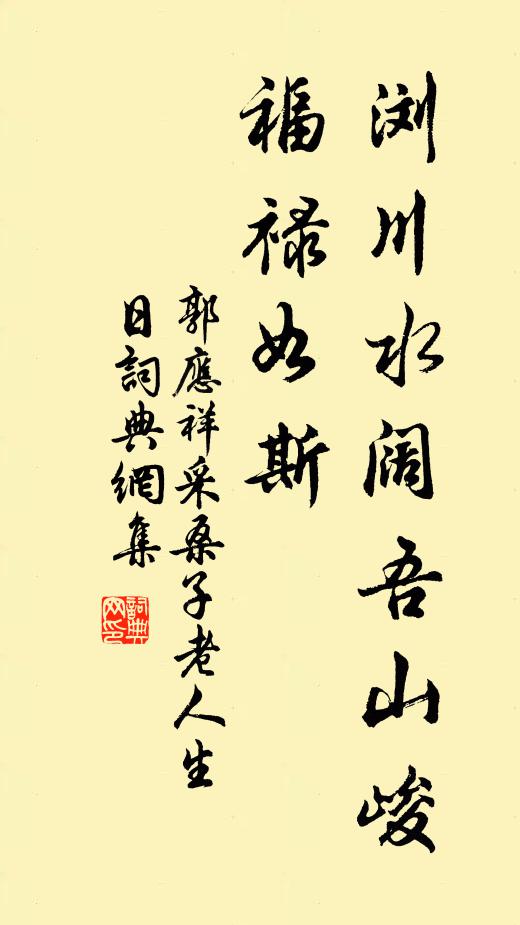 浏川水阔吾山峻
福禄如斯
郭應祥采桑子老人生
日詞典網集
詞典网印